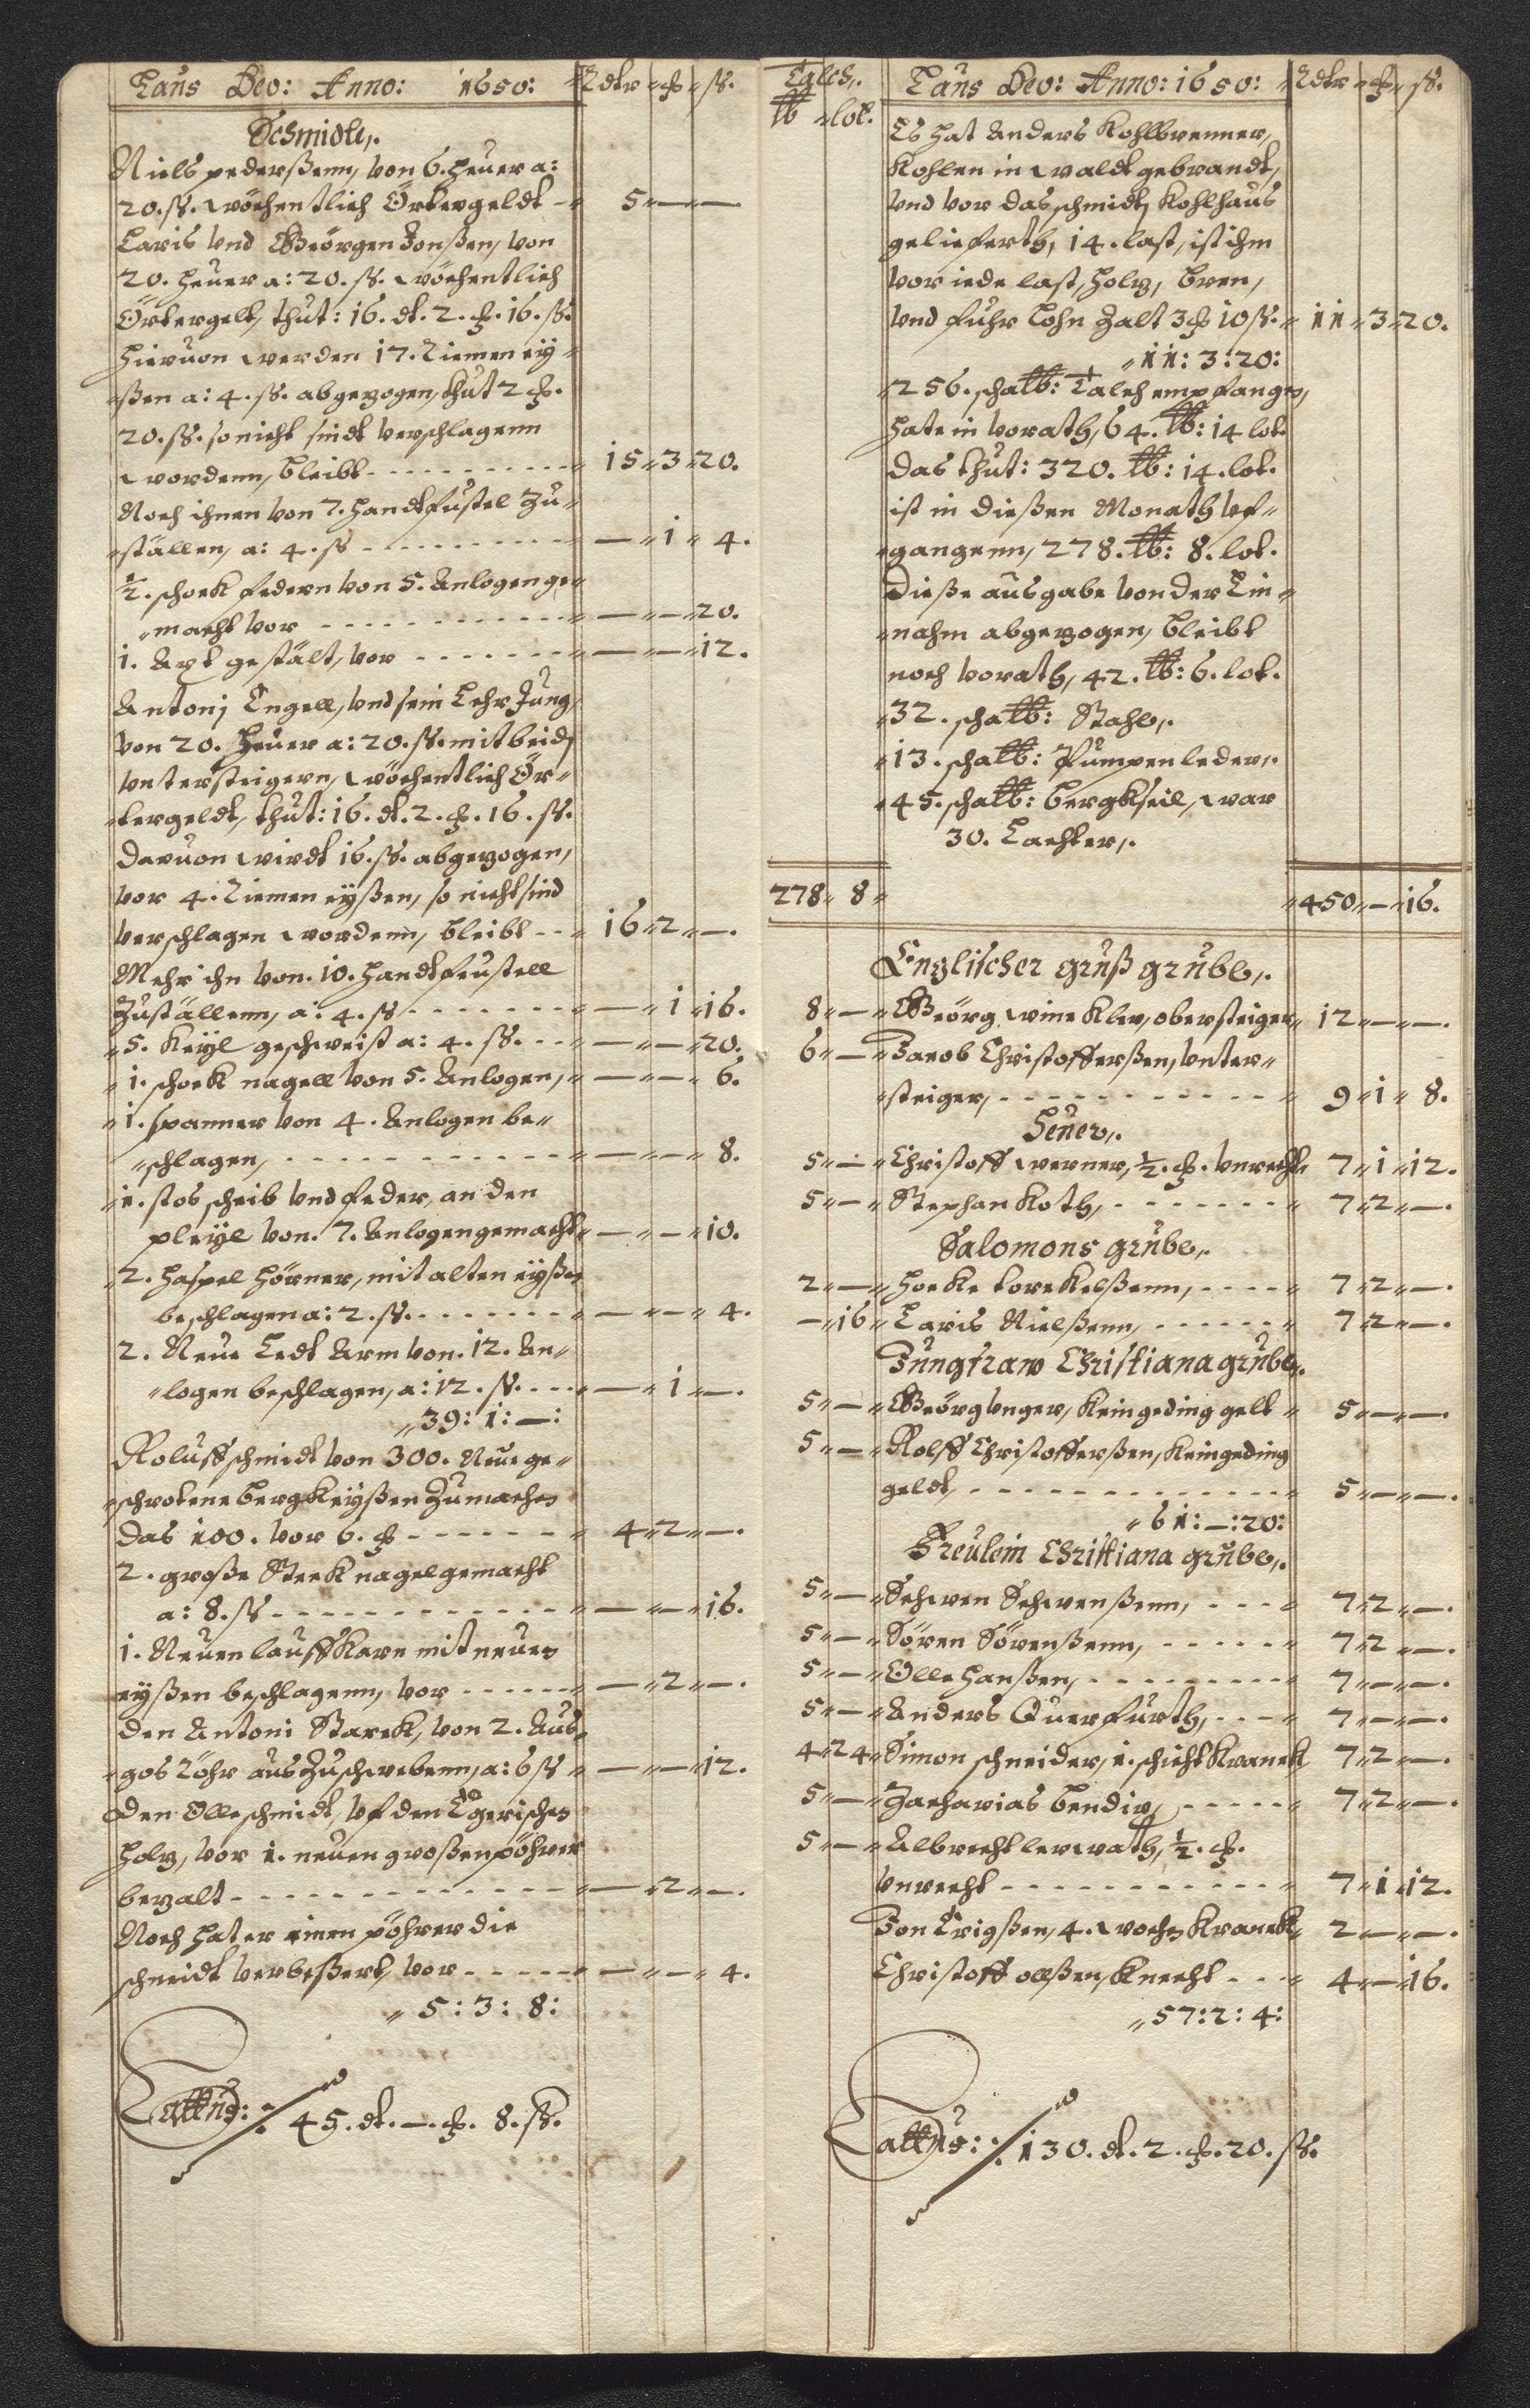 Laus Deo: Anno: 1650: Rdtr ȹ ß.
Schmidte,.
Niels pederßenn, von 6. heuer a:
20. ß. wöchentlich Örtergeldt - 5 — —
Laris vnd Geörgen Jonßen, von
20. heuer a: 20. ß. wöchentlich
Örtergelt, thut: 16. dt. 2. ȹ. 16. ß.
hieruon werden 17. Riemen ey-
ßen a: 4. ß. abgezogen, thut 2 ȹ.
20. ß. so nicht sindt verschlagenn
wordenn, bleibt - - - 15 3 20.
Noch ihnen von 7. handtfustel Zu-
ställen, a: 4. ß - - - — 1 4.
½. schock federn von 5. Anlogen ge-
macht vor - - - — — 20.
1. Axt gestält, vor - - - — — 12.
Antonj Engell, vnd sein Lehr Jung,
von 20. heuer a: 20. ß. mit beidē
vntersteigern, wöchentlich Ör-
tergeldt, thut: 16. dt. 2. ȹ. 16. ß.
Daruon wirdt 16. ß. abgezogen,
vor 4. Riemen eyßen, so nicht sind
verschlagen wordenn, bleibt - - 16 2 —.
Mehr ihn von. 10. handtfeustell
Zuställenn, a: 4. ß - - - — 1 16.
5. Keyl geschweist a: 4. ß. - - - — — 20.
1. schock nagell von 5. Anlogen, — — 6.
1. spanner von 4. Anlogen be-
schlagen, - - - — — 8.
1. stos scheib vnd feder, an den
pleyl von. 7. Anlogen gemacht — — 10.
2. haspel hörner, mit alten eyßen
beschlagen a: 2. ß. - - - — — 4.
2. Neue Ledt Arm von. 12. An-
logen beschlagen, a: 12. ß. - - - — 1 —.
39: 1: —:
Roluff schmidt von 300. Neue ge-
schrotene Bergk eyßen Zumachen
das 100. vor 6. ȹ - - - 4 2 —.
2. große Steck nagel gemacht
a: 8. ß - - - — — 16.
1. Neuen lauffkarn mit neuen
eyßen beschlagenn, vor - - - — 2 —.
Den Antoni Starck, von 2. Aus-
gos Röhr aus Zuschwebenn, a: 6 ß — — 12.
Den Olle schmidt, vf den Egerischen
holtz, vor 1. neuen großen pöhrer
bezalt - - - — 2 —.
Noch hat er einen pöhrer die
schneidt verbeßert, vor - - - — — 4.
5: 3: 8:
Lattus: 45. dt. —. ȹ. 8. ß.
Talch,. Laus Deo: Anno: 1650: Rdtr ȹ ß.
℔ lot.
Es hat Anders Kohlbrenner,
Kohlen in waldt gebrandt,
vnd vor das schmidt Kohlhaus
geliefferth, 14. last, ist ihm
vor iede last, holtz, Bren,
vnd fuhr Lohn Zalt 3 ȹ 10 ß. 11 3 20.
11: 3: 20:
256. scha℔: Talch empfangen,
hate in vorath, 64. ℔: 14 lot.
das thut: 320. ℔: 14. lot.
ist in dießen Monath vf-
gangenn, 278. ℔: 8. lot.
Dieße ausgabe von der Ein-
nahm abgezogen, bleibt
noch vorath, 42. ℔: 6. lot.
32. scha℔: Stahl,.
13. scha℔: Pumpen leder,.
45. scha℔: Bergkseil, war
30. Lachter,.
278 8 450 — 16.
Englischer gruß grube,.
8 — Geörg winckler, obersteiger 12 — —.
6 — Jacob Christofferßen, vnter-
steiger, - - - 9 1 8.
Heuer,.
5 — Christoff werner, ½. ȹ. vnrecht 7 1 12.
5 — Stephan Koth, - - - 7 2 —.
Salomons grube,.
2 — Hocke torckelßenn, - - - 7 2 —.
— 16 Laris Nielßenn, - - - 7 2 —.
Jungfraw Christiana grube,.
5 — Geörg vnger, kein geding gelt 5 — —.
5 — Rolff Christofferßen, kein geding
geldt, - - - 5 — —.
61: —: 20:
Freulein Christiana grube,.
5 — Schwen Schwenßenn, - - - 7 2 —.
5 — Sören Sörenßenn, - - - 7 2 —.
5 — Olle Hanßen, - - - 7 — —.
5 — Anders Querfurth, - - - 7 — —.
4 24 Simon schneider, 1. schicht Kranck 7 2 —.
5 — Zacharias Bendix, - - - 7 2 —.
5 — Albrecht lerwath, ½. ȹ.
vnrecht - - - 7 1 12.
Jon Erigßen, 4. wochen Kranck 2 — —.
Christoff olßen, Knecht - - - 4 — 16.
57: 2: 4:
Lattus: 130. dt. 2. ȹ. 20. ß.